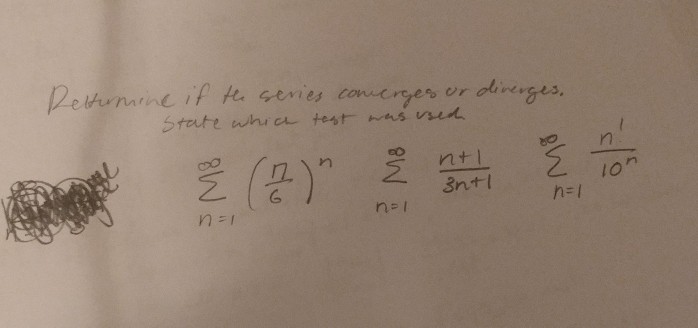 Determine if the series converges or diverges.
State which test was used
∞ ∞ ∞
Σ (π/6)^n Σ (n+1)/(3n+1) Σ n!/10^n
n=1 n=1 n=1